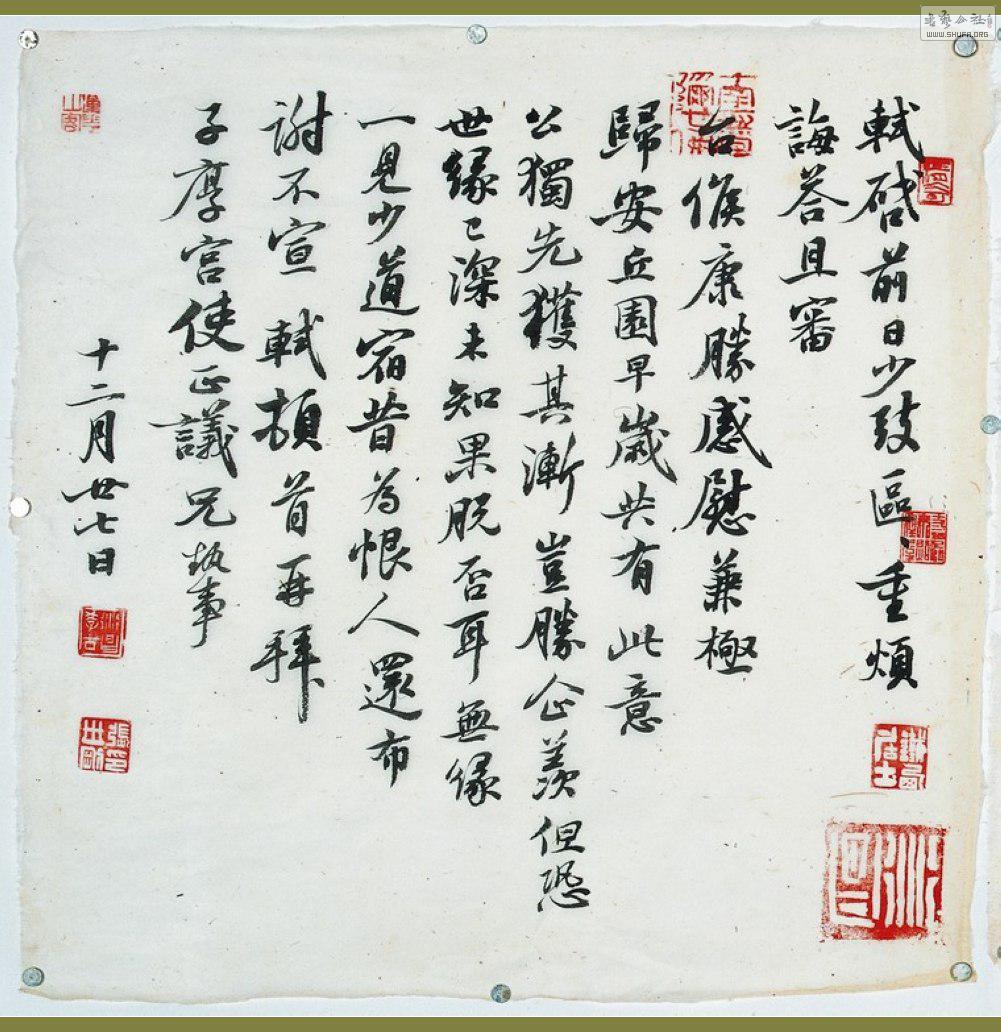 軾啓前日少致區〻重煩
誨荅且審
台候康勝感慰兼極
歸安丘園早歲共有此意
公獨先獲其漸豈勝企羨但恐
世緣已深未知果脫否耳無緣
一見少道宿昔為恨人還布
謝不宣軾頓首再拜
子厚宮使正議兄執事
十二月廿七日
WWW.SHUFA.ORG